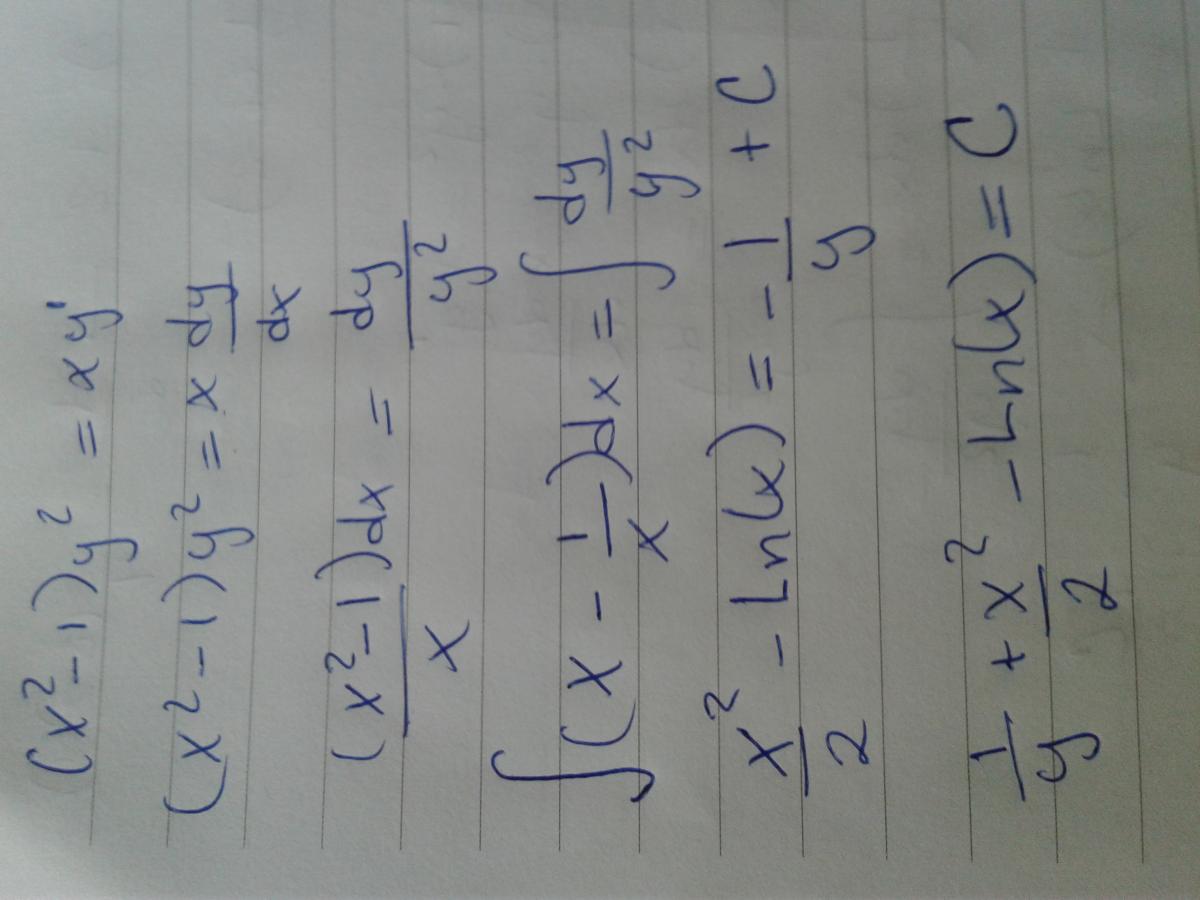 (x²-1)y² = xy'
(x²-1)y² = x dy/dx
(x²-1)/x dx = dy/y²
∫(x - 1/x)dx = ∫ dy/y²
x²/2 - Ln(x) = - 1/y + C
1/y + x²/2 - Ln(x) = C